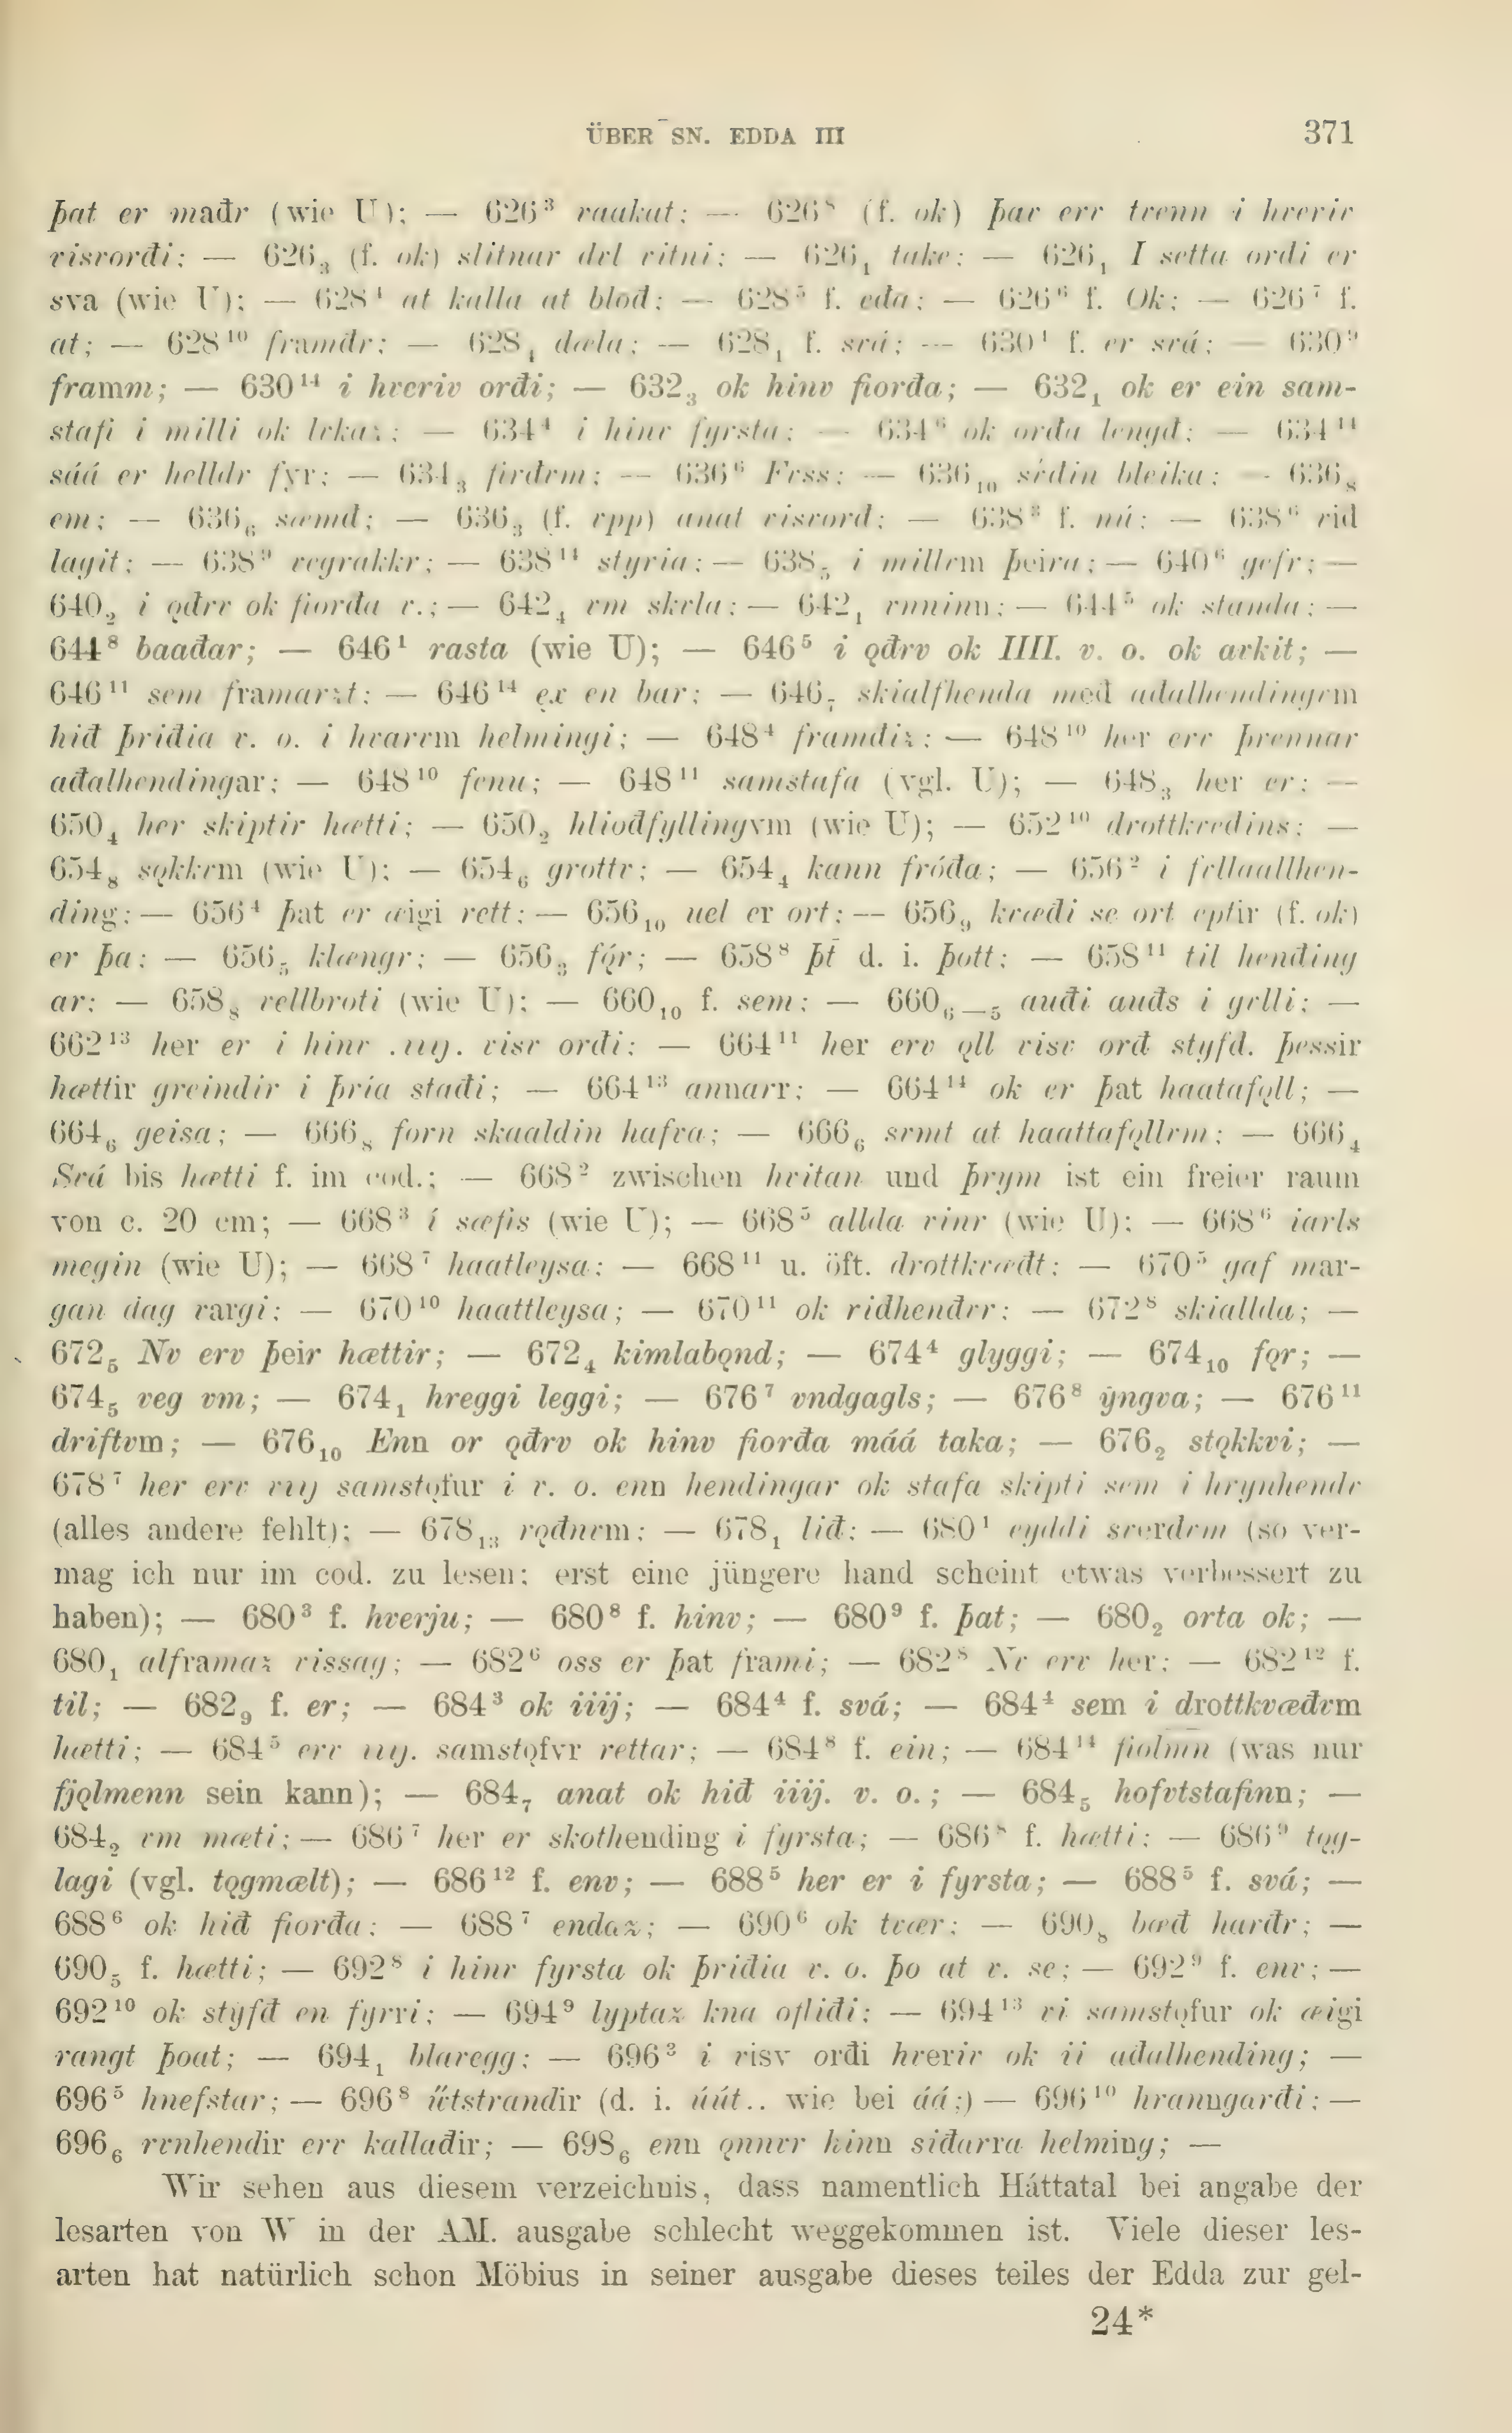 ÜBER SN. EDDA III 371
þat er maðr (wie U); — 626³ raakat; — 626⁸ (f. ok) þar erv tvenn i hveriv
visvorði; — 626₃ (f. ok) slitnar vitni; — 626₁ take; — 626₁ I setta ordi er
sva (wie U); — 628⁴ at kalla at bloð; — 628⁵ f. eða; — 626⁶ f. Ok; — 626⁷ f.
at; — 628¹⁰ framðr; — 628₁ dæla; — 628₁ f. svá; — 630¹ f. er svá; — 630⁹
framm; — 630¹⁴ i hveriv orði; — 632₃ ok hinv fiorða; — 632₁ ok er ein sam-
stafi i milli ok lvkaz; — 634⁴ i hinv fyrsta; — 634⁶ ok orða lengð; — 634¹⁴
sáá er helldr fyr; — 634₃ firðvm; — 636⁶ Fvss; — 636₁₀ bleika; — 636₈
em; — 636₆ sæmð; — 636₃ (f. vpp) anat visvord; — 638³ f. nú; — 638⁶ við
lagit; — 638⁹ vegrakkr; — 638¹⁴ styria; — 638₅ i millvm þeira; — 640⁶ gefr; —
640₂ i ǫðrv ok fiorða v.; — 642₄ vm skvla; — 642₁ vnninn; — 644⁵ ok standa; —
644⁸ baaðar; — 646¹ rasta (wie U); — 646⁵ i ǫðrv ok IIII. v. o. ok arkit; —
646¹¹ sem framarzt; — 646¹⁴ ex en bar; — 646₇ skialfhenda með aðalhendingvm
hið þriðia v. o. i hvarvm helmingi; — 648⁴ framðiz; — 648¹⁰ her erv þrennar
aðalhendingar; — 648¹⁰ fenu; — 648¹¹ samstafa (vgl. U); — 648₃ her er; —
650₄ her skiptir hætti; — 650₂ hlioðfyllingvm (wie U); — 652¹⁰ drottkvedins; —
654₈ sǫkkvm (wie U); — 654₆ grottv; — 654₄ kann fróða; — 656² i fvllaallhen-
ding; — 656⁴ þat er æigi rett; — 656₁₀ uel er ort; — 656₉ kvæði se ort eptir (f. ok)
er þa; — 656₅ klængr; — 656₃ fǫ́r; — 658⁸ þt̄ d. i. þott; — 658¹¹ til hending
ar; — 658₈ vellbroti (wie U); — 660₁₀ f. sem; — 660₆—₅ auði auðs i gvlli; —
662¹³ her er i hinv .uij. visv orði; — 664¹¹ her erv ǫll visv orð styfd. þessir
hættir greindir i þría staði; — 664¹³ annarr; — 664¹⁴ ok er þat haatafǫll; —
664₆ geisa; — 666₈ forn skaaldin hafva; — 666₆ svmt at haattafǫllvm; — 666₄
Svá bis hætti f. im cod.; — 668² zwischen hvitan und þrym ist ein freier raum
von c. 20 cm; — 668³ í sæfis (wie U); — 668⁵ allda vinr (wie U); — 668⁶ iarls
megin (wie U); — 668⁷ haatleysa; — 668¹¹ u. öft. drottkvædt; — 670⁵ gaf mar-
gan dag vargi; — 670¹⁰ haattleysa; — 670¹¹ ok riðhendrr; — 672⁸ skiallda; —
672₅ Nv erv þeir hættir; — 672₄ kimlabǫnd; — 674⁴ glyggi; — 674₁₀ fǫr; —
674₅ veg vm; — 674₁ hreggi leggi; — 676⁷ vndgagls; — 676⁸ ẏngva; — 676¹¹
driftvm; — 676₁₀ Enn or ǫðrv ok hinv fiorða máá taka; — 676₂ stǫkkvi; —
678⁷ her erv viij samstǫfur i v. o. enn hendingar ok stafa skipti sem i hrynhendv
(alles andere fehlt); — 678₁₃ rǫðnvm; — 678₁ lið; — 680¹ eyddi sverdvm (so ver-
mag ich nur im cod. zu lesen; erst eine jüngere hand scheint etwas verbessert zu
haben); — 680³ f. hverju; — 680⁸ f. hinv; — 680⁹ f. þat; — 680₂ orta ok; —
680₁ alframaz vissag; — 682⁶ oss er þat frami; — 682⁸ Nv erv her; — 682¹² f.
til; — 682₉ f. er; — 684³ ok iiij; — 684⁴ f. svá; — 684⁴ sem i drottkvæðvm
hætti; — 684⁵ erv uij. samstǫfvr rettar; — 684⁸ f. ein; — 684¹⁴ fiolmn̄ (was nur
fjǫlmenn sein kann); — 684₇ anat ok hið iiij. v. o.; — 684₅ hofvtstafinn; —
684₂ vm mæti; — 686⁷ her er skothending i fyrsta; — 686⁸ f. hætti; — 686⁹ tǫg-
lagi (vgl. tǫgmælt); — 686¹² f. env; — 688⁵ her er i fyrsta; — 688⁵ f. svá; —
688⁶ ok hið fiorða; — 688⁷ endaz; — 690⁶ ok tvær; — 690₈ bæð harðr; —
690₅ f. hætti; — 692⁸ i hinv fyrsta ok þriðia v. o. þo at v. se; — 692⁹ f. env; —
692¹⁰ ok styfð en fyrri; — 694⁹ lyptaz kna ofliði; — 694¹³ vi samstǫfur ok æigi
rangt þoat; — 694₁ blavegg; — 696³ i visv orði hveriv ok ii aðalhending; —
696⁵ hnefstar; — 696⁸ űtstrandir (d. i. úút.. wie bei áá;) — 696¹⁰ hranngarði; —
696₆ rvnhendir erv kallaðir; — 698₆ enn ǫnnvr hinn siðarra helming; —
Wir sehen aus diesem verzeichnis, dass namentlich Háttatal bei angabe der
lesarten von W in der AM. ausgabe schlecht weggekommen ist. Viele dieser les-
arten hat natürlich schon Möbius in seiner ausgabe dieses teiles der Edda zur gel-
24*